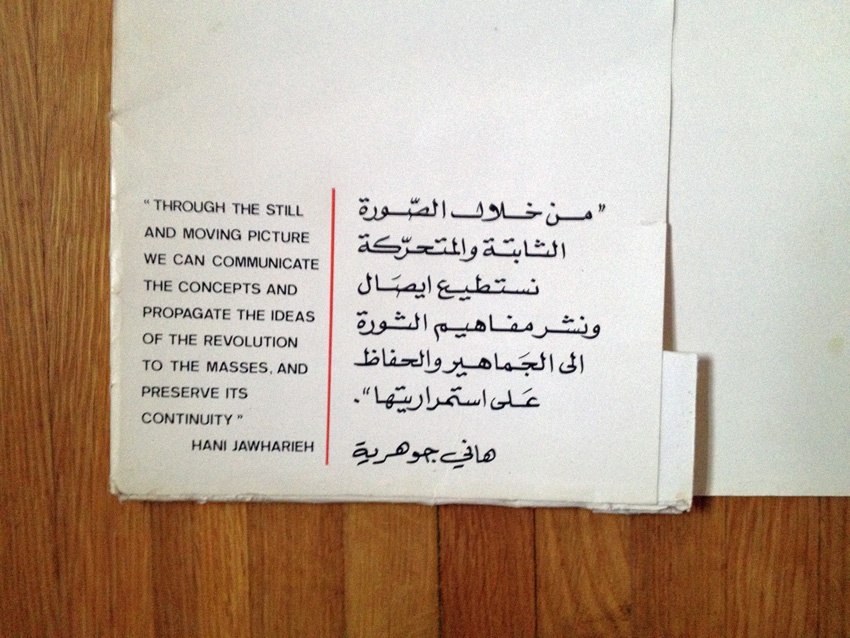 “ THROUGH THE STILL
AND MOVING PICTURE
WE CAN COMMUNICATE
THE CONCEPTS AND
PROPAGATE THE IDEAS
OF THE REVOLUTION
TO THE MASSES, AND
PRESERVE ITS
CONTINUITY ”
HANI JAWHARIEH
”من خلال الصّورة
الثابتة والمتحرّكة
نستطيع ايصَال
ونشر مفاهيم الثورة
الى الجَماهير والحفاظ
عَلى استمراريتها“.
هاني جوهرية